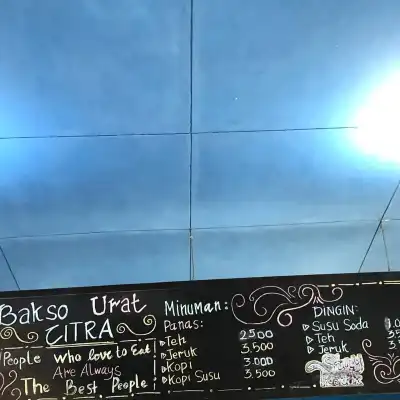 Bakso Urat
CITRA
People who love to Eat
Are Always
The Best People!
Minuman:
Panas:
Teh 2500
Jeruk 3.500
Kopi 3.000
Kopi Susu 3.500
DINGIN:
Susu Soda
Teh
Jeruk